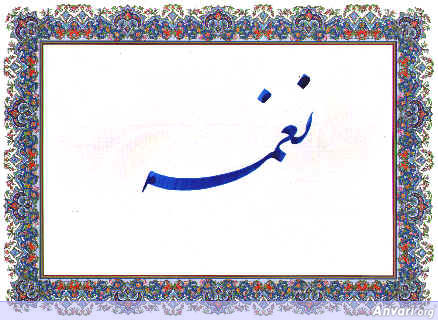 نغمه
Anvari.org